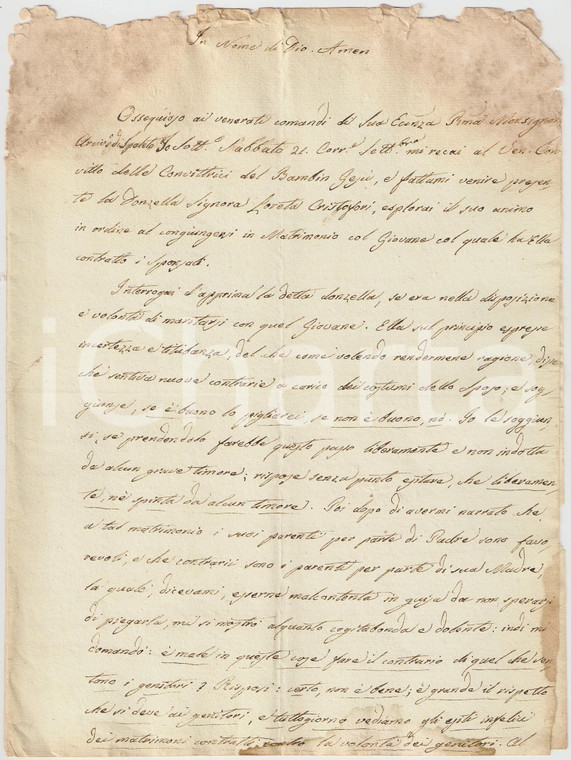 In Nome di Dio. Amen
Ossequioso ai venerati comandi di Sua Eccnza Rma Monsignor
Arciv.o di Spoleto Io Sott.o Sabbato 21. Corr.e Settbre mi recai al Ven. Con-
vitto delle Convittrici del Bambin Gesù, e fattami venire presen-
te la Donzella Signora Loreta Cristofori, esplorai il suo animo
in ordine al congiungersi in Matrimonio col Giovane col quale ha Ella
contratto i Sponsali.
Interrogai d'apprima la detta donzella, se era nella disposizione
e volontà di maritarsi con quel Giovane. Ella sul principio espresse
incertezza e titubanza, del che come volendo rendermene ragione, disse
che sentiva nuove contrarie a carico dei costumi dello Sposo; e sog-
giunse, se è buono lo piglierei, se non è buono, nò. Io le soggiun-
si, se prendendolo farebbe questo passo liberamente e non indotta
da alcun grave timore; rispose senza punto esitare, che liberamen-
te, nè spinta da alcun timore. Poi dopo di avermi narrato che
a tal matrimonio i suoi parenti per parte di Padre sono favo-
revoli, e che contrarii sono i parenti per parte di sua Madre,
la quale, dicevami, esserne malcontenta in guisa da non sperarsi
di piegarla, mi si mostrò alquanto cogitabonda e dolente: indi mi
domandò: è male in queste cose fare il contrario di quel che sen-
tono i genitori? Risposi: certo, non è bene; è grande il rispetto
che si deve ai genitori, e tuttogiorno vediamo gli esiti infelici
dei matrimoni contratti contro la volontà dei genitori. Al
iCharta